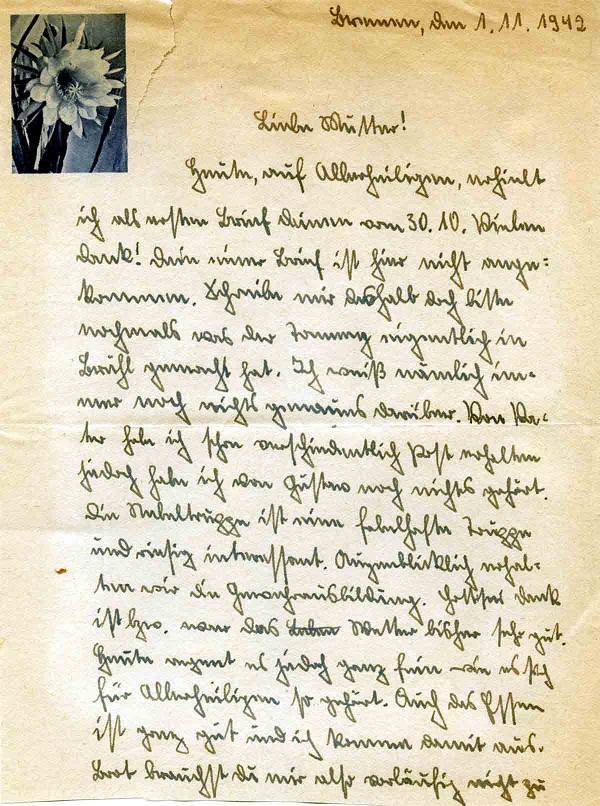 Bremen, den 1.11.1942
Liebe Mutter!
Heute, auf Allerheiligen, erhielt
ich als ersten Brief deinen vom 30.10. Vielen
Dank! Dein einer Brief ist hier nicht ange=
kommen. Schreibe mir deshalb doch bitte
nochmals was der Tommy eigentlich in
Brühl gemacht hat. Ich weiß nämlich im=
mer noch nichts genaues darüber. Von Va=
ter habe ich schon verschiedentlich Post erhalten
jedoch habe ich von Gustav noch nichts gehört.
Die Nebeltruppe ist eine fabelhafte Truppe
und riesig interessant. Augenblicklich erhal=
ten wir die Gewehrausbildung. Gottsei dank
ist bzw. war das Wetter bisher sehr gut.
Heute regnet es jedoch ganz fein wie es sich
für Allerheiligen so gehört. Auch das Essen
ist ganz gut und ich komme damit aus.
Brot brauchst du mir also vorläufig nicht zu